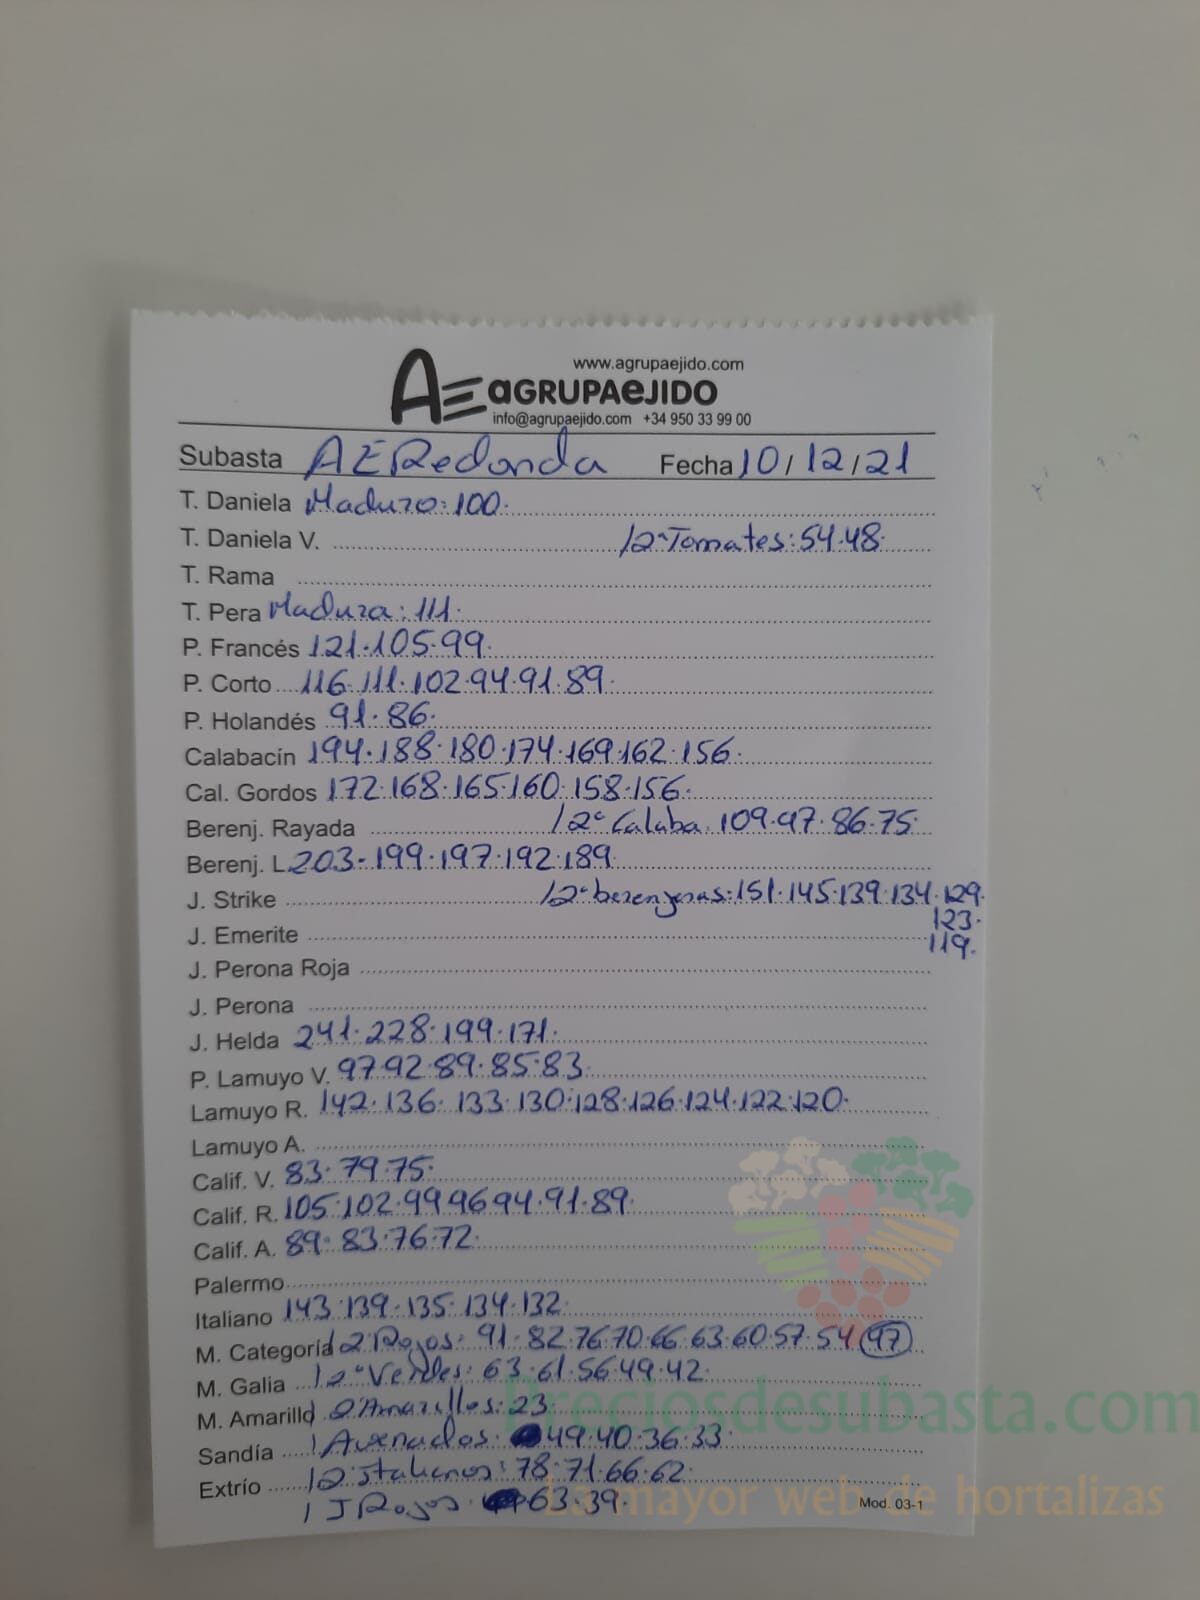 www.agrupaejido.com
AE aGRUPAeJIDO
info@agrupaejido.com +34 950 33 99 00
Subasta AE Redonda Fecha 10/12/21
T. Daniela Maduro: 100.
T. Daniela V. /2ª Tomates: 54.48.
T. Rama
T. Pera Madura: 111.
P. Francés 121.105.99.
P. Corto 116.111.102.94.91.89.
P. Holandés 91.86.
Calabacín 194.188.180.174.169.162.156.
Cal. Gordos 172.168.165.160.158.156.
Berenj. Rayada /2ª Calaba. 109.97.86.75.
Berenj. L 203.199.197.192.189.
J. Strike /2ª berenjenas: 151.145.139.134.129.
123.
J. Emerite 119.
J. Perona Roja
J. Perona
J. Helda 241.228.199.171.
P. Lamuyo V. 97.92.89.85.83.
Lamuyo R. 142.136.133.130.128.126.124.122.120.
Lamuyo A.
Calif. V. 83.79.75.
Calif. R. 105.102.99.96.94.91.89.
Calif. A. 89.83.76.72.
Palermo
Italiano 143.139.135.134.132.
M. Categoría /2 Rojos: 91.82.76.70.66.63.60.57.54 (97)
M. Galia /2ª Verdes: 63.61.56.49.42.
M. Amarillo /2ª Amarillos: 23.
Sandía / Avenados. 49.40.36.33.
Extrío /2 Italianos: 78.71.66.62.
/ J Rojos. 63.39.
Mod. 03-1
Preciosdesubasta.com
La mayor web de hortalizas